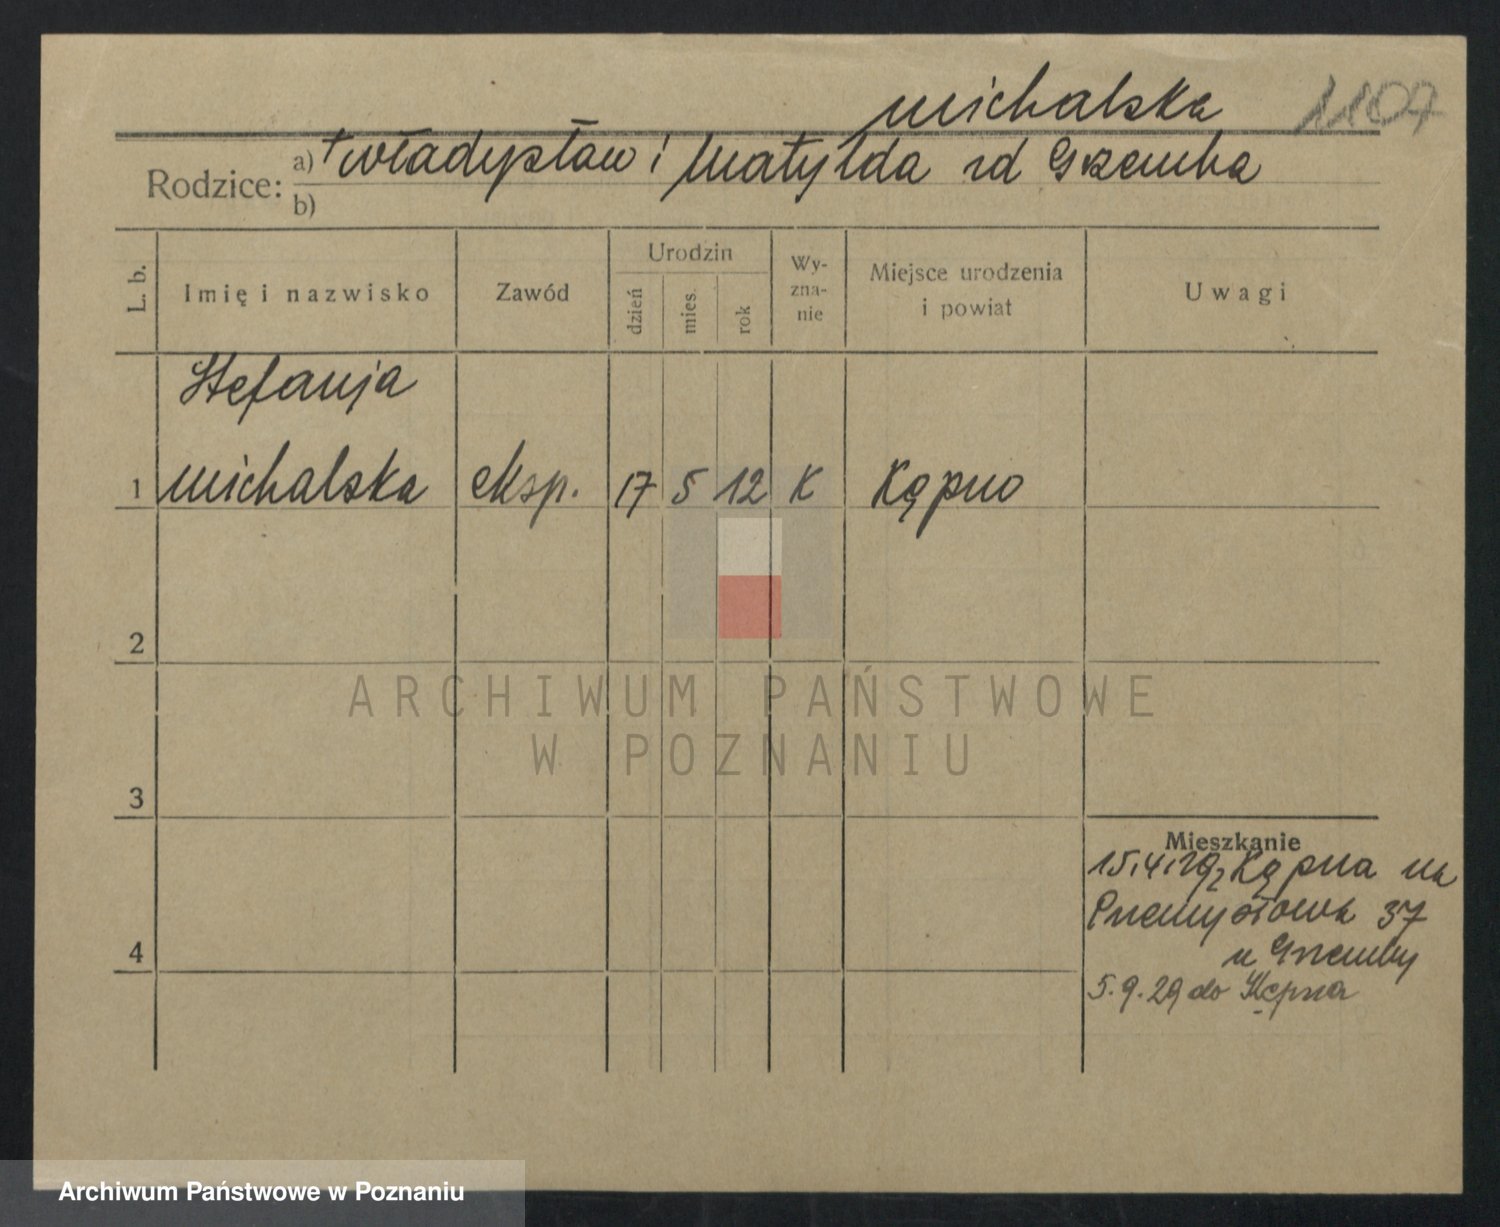 Michalska 1107
Rodzice: a) + Władysław i Matylda zd Grzemba
b)
L. b. Imię i nazwisko Zawód Urodzin dzień mies. rok Wy-zna-nie Miejsce urodzenia i powiat Uwagi
Stefanja
1 Michalska eksp. 17 5 12 K Kępno
2
ARCHIWUM PAŃSTWOWE
W POZNANIU
3
Mieszkanie
15.4.29 z Kępna na
Przemysłowa 37
4 u Grzemby
5.9.29 do Kępna
Archiwum Państwowe w Poznaniu